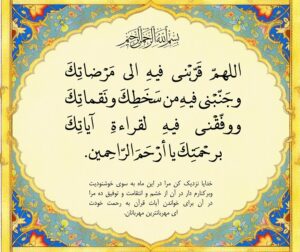 بسم الله الرحمن الرحیم
اللهمّ قَرِّبْنی فیهِ الی مَرْضاتِكَ
وجَنّبْنی فیهِ من سَخَطِكَ ونَقماتِكَ
ووفّقْنی فیهِ لقراءةِ آیاتِكَ
برحْمَتِكَ یا أرْحَمَ الرّاحِمین.
خدایا نزدیک کن مرا در این ماه به سوی خوشنودیت
وبرکنارم دار در آن از خشم و انتقامت و توفیق ده مرا
در آن برای خواندن آیات قرآن به رحمت خودت
ای مهربانترین مهربانان.